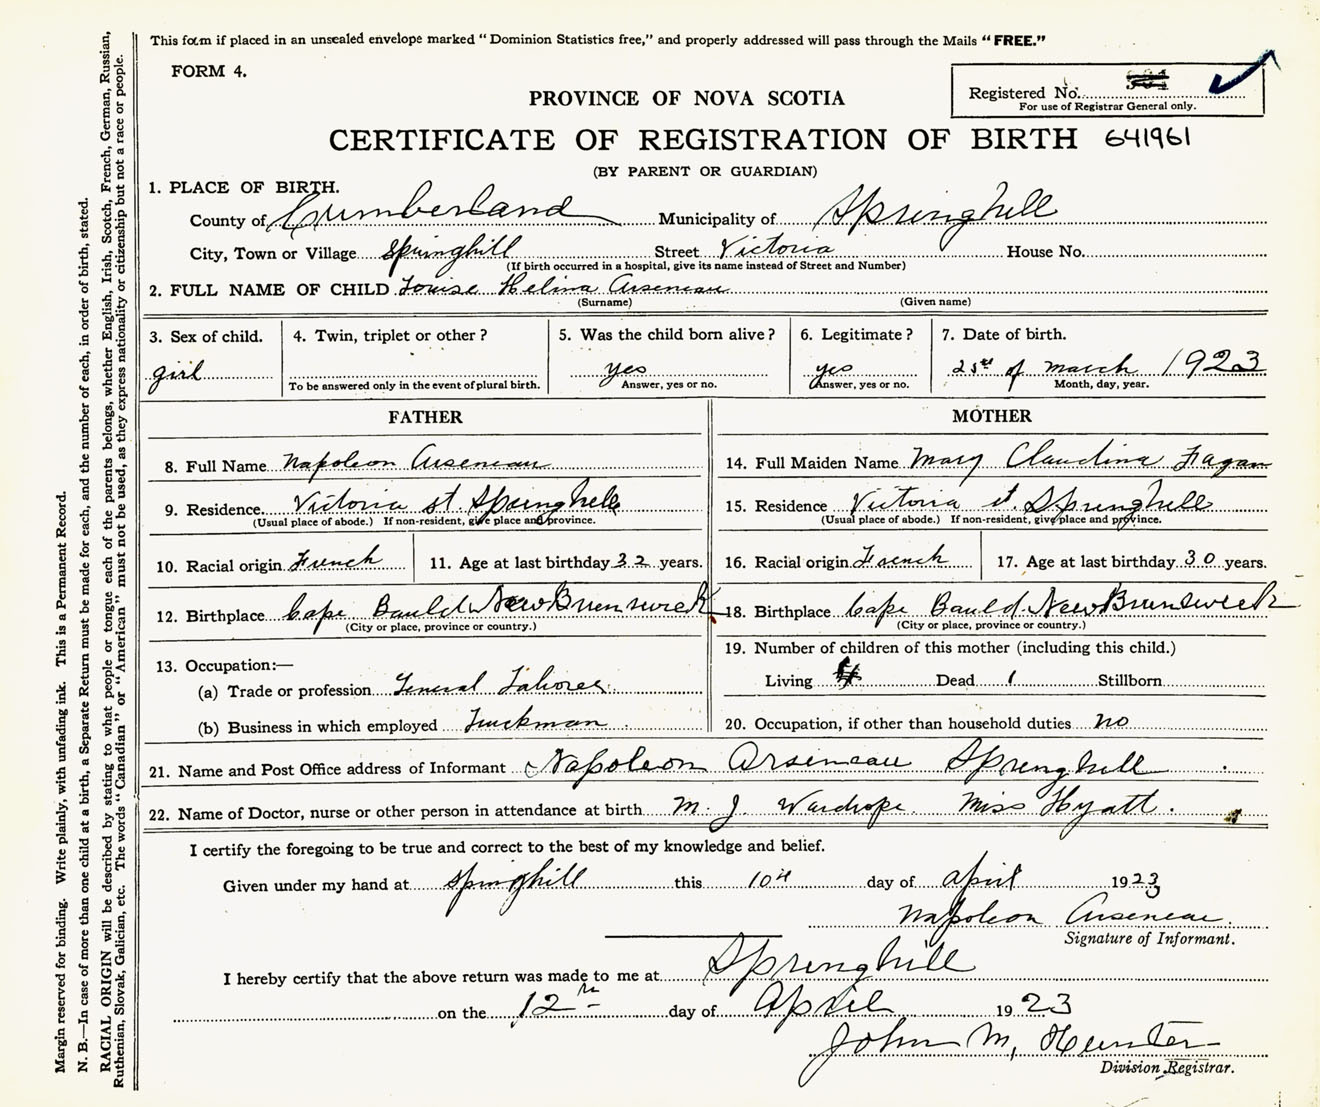 This form if placed in an unsealed envelope marked "Dominion Statistics free," and properly addressed will pass through the Mails "FREE."
FORM 4.
Registered No.
For use of Registrar General only.
PROVINCE OF NOVA SCOTIA
CERTIFICATE OF REGISTRATION OF BIRTH 641961
(BY PARENT OR GUARDIAN)
1. PLACE OF BIRTH.
County of Cumberland Municipality of Springhill
City, Town or Village Springhill Street Victoria House No.
(If birth occurred in a hospital, give its name instead of Street and Number)
2. FULL NAME OF CHILD Louise Helina Arseneau
(Surname) (Given name)
3. Sex of child. 4. Twin, triplet or other? 5. Was the child born alive? 6. Legitimate? 7. Date of birth.
girl yes yes of march 1923
To be answered only in the event of plural birth. Answer, yes or no. Answer, yes or no. Month, day, year.
FATHER MOTHER
8. Full Name Napoleon Arseneau 14. Full Maiden Name Mary Claudina Fagan
9. Residence. Victoria st. Springhill 15. Residence Victoria st. Springhill
(Usual place of abode.) If non-resident, give place and province. (Usual place of abode.) If non-resident, give place and province.
10. Racial origin French 11. Age at last birthday 32 years. 16. Racial origin French 17. Age at last birthday 30 years.
12. Birthplace Cape Bauld New Brunswick 18. Birthplace Cape Bauld. New Brunswick
(City or place, province or country.) (City or place, province or country.)
13. Occupation:— 19. Number of children of this mother (including this child.)
(a) Trade or profession General Laborer Living 4 Dead 1 Stillborn
(b) Business in which employed Truckman 20. Occupation, if other than household duties no
21. Name and Post Office address of Informant Napoleon Arseneau Springhill
22. Name of Doctor, nurse or other person in attendance at birth M. J. Wardrope. Miss Hyatt.
I certify the foregoing to be true and correct to the best of my knowledge and belief.
Given under my hand at Springhill this 10th day of april 1923
Napoleon Arseneau.
Signature of Informant.
I hereby certify that the above return was made to me at Springhill
on the 12th day of April 1923
John M. Hunter
Division Registrar.
Margin reserved for binding. Write plainly, with unfading ink. This is a Permanent Record.
N. B.—In case of more than one child at a birth, a Separate Return must be made for each, and the number of each, in order of birth, stated.
RACIAL ORIGIN will be described by stating to what people or tongue each of the parents belongs, whether English, Irish, Scotch, French, German, Russian,
Ruthenian, Slovak, Galician, etc. The words "Canadian" or "American" must not be used, as they express nationality or citizenship but not a race or people.